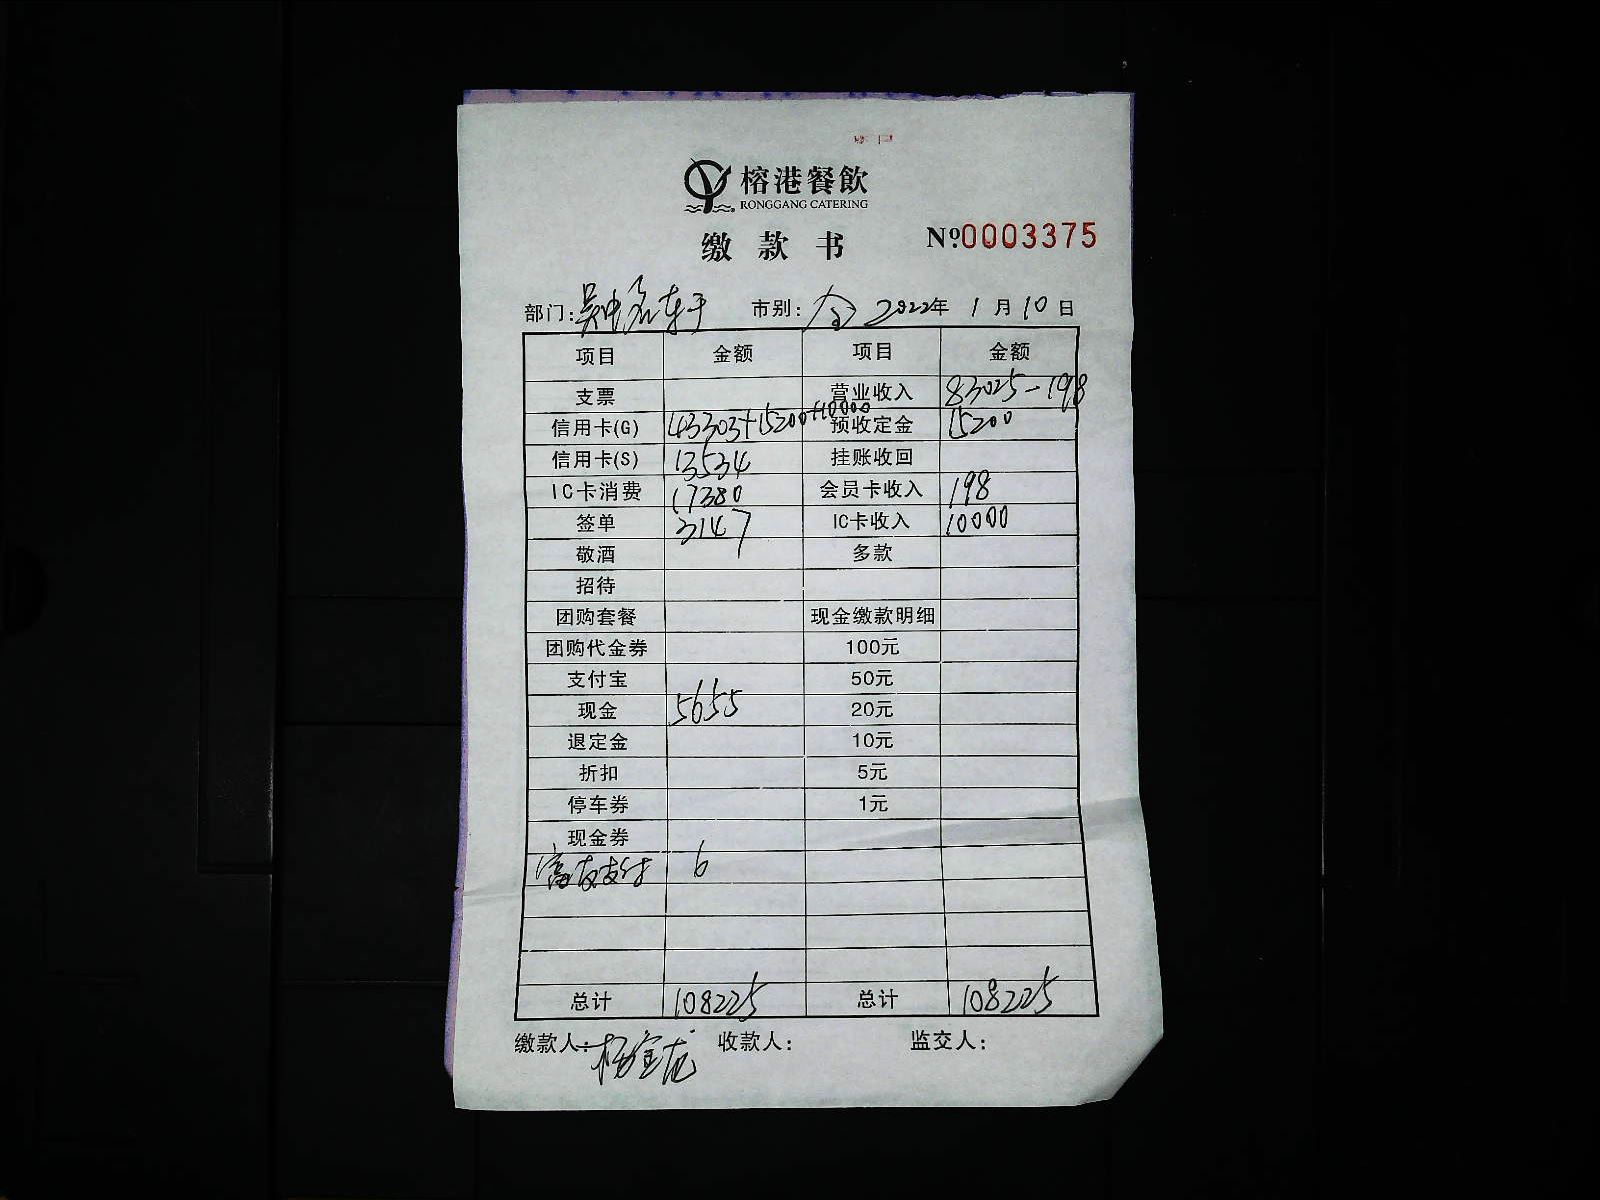 榕港餐飲
RONGGANG CATERING
缴款书 №0003375
部门: 吴中 市别: 全 2022年 1月10日
项目 金额 项目 金额
支票 营业收入 83025-198
信用卡(G) 43303+15200+10000 预收定金 15200
信用卡(S) 13534 挂账收回
IC卡消费 17380 会员卡收入 198
签单 3147 IC卡收入 10000
敬酒 多款
招待
团购套餐 现金缴款明细
团购代金券 100元
支付宝 50元
现金 5655 20元
退定金 10元
折扣 5元
停车券 1元
现金券
富友支付 6
总计 108225 总计 108225
缴款人: 杨宝龙 收款人: 监交人: